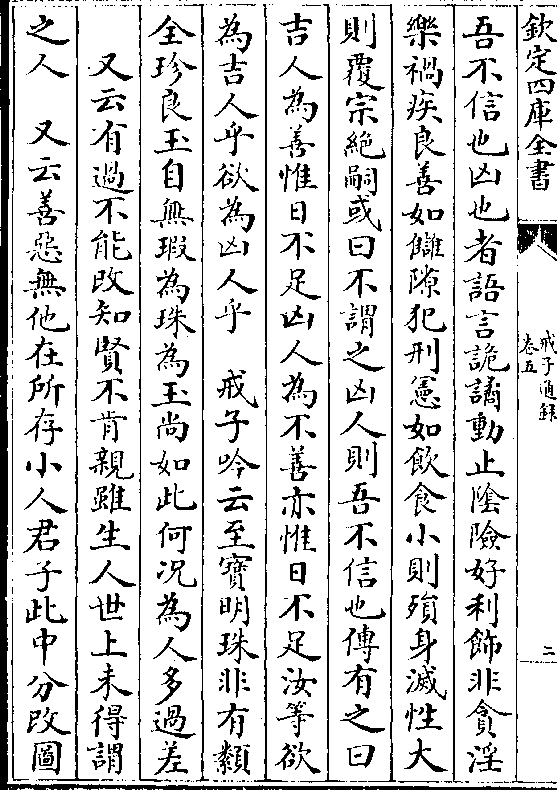 欽定四庫全書
戒子通録
卷五
二
吾不信也凶也者語言詭譎動止陰險好利飾非貪淫
樂禍疾良善如讎隙犯刑憲如飲食小則殞身滅性大
則覆宗絶嗣或曰不謂之凶人則吾不信也傳有之曰
吉人為善惟日不足凶人為不善亦惟日不足汝等欲
為吉人乎欲為凶人乎 戒子吟云至寶明珠非有纇
全珍良玉自無瑕為珠為玉尚如此何況為人多過差
又云有過不能改知賢不肯親雖生人世上未得謂
之人 又云善惡無他在所存小人君子此中分改圖